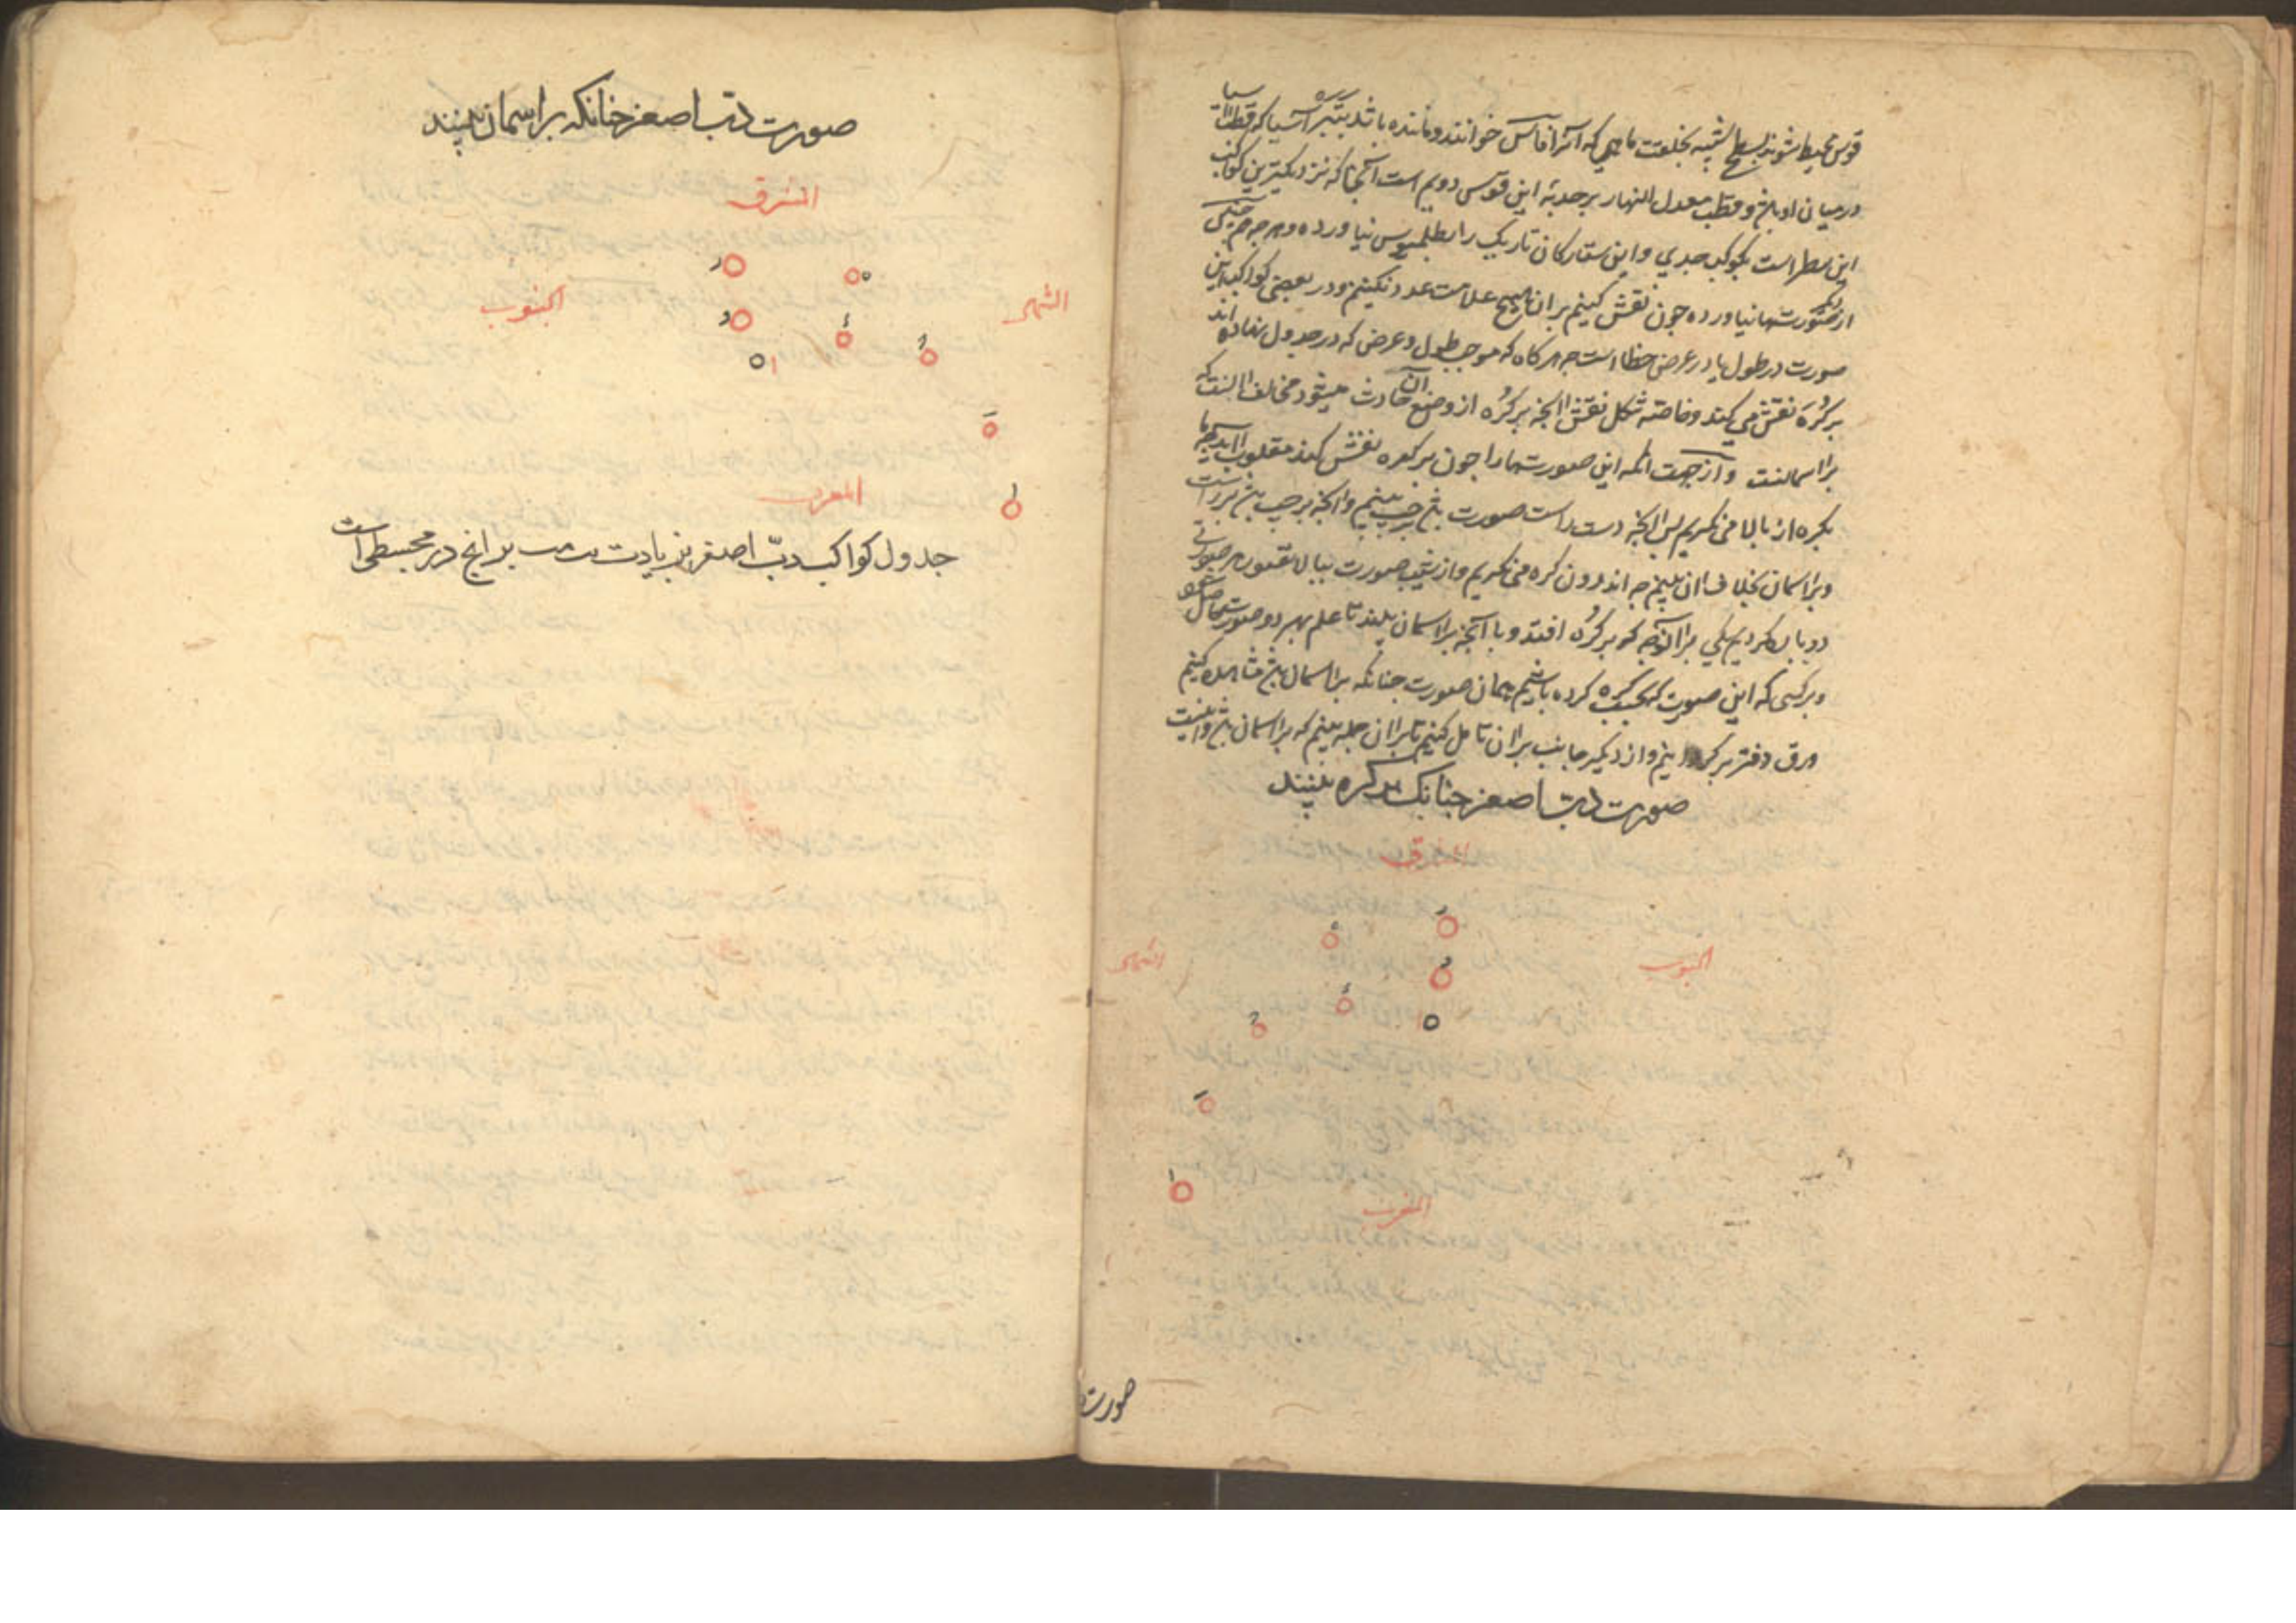 قوس محیط شوند بسطح شبیه بخلقت ماهی که آنرا فاس خوانند و ماننده باشد بتبره آسیا که قطب
در میان او باشد و قطب معدل النهار بر حدبهٔ این قوس دویم است آنجا که نزدیکترین کواکب
این سطر است بکوکب جدی و این ستارکان تاریک را بطلمیوس نیاورده و هرچه
از صورتها نیاورده چون نقش کنیم بران هیچ علامت عدد نکنیم و در بعضی کواکب این
صورت در طول یا در عرض خطا است چه هرکاه که موجب طول و عرض که در جدول نهاده اند
بر کره نقش می کند و خاصه شکل نقش آنچه بر کره از وضع آن حادث میشود مخالف آنست که
بر اسمانست و از جهت آنکه این صورتها را چون بر کره نقش کند مقلوب آید چه ما
بکره از بالا می نکریم پس آنچه دست راست صورت باشد بر چپ بینیم و آنچه بر چپ باشد بر راست
و بر اسمان بخلاف ان بینیم چه اندرون کره می نکریم و از شیب صورت ببالا
دو بار کردیم یکی بر آن وجه که بر کره افتد و با آنچه بر اسمان بینند تا علم بهر دو صورت حاصل شود
و بر کسی که این صورت کره کرده باشیم همان صورت چنانکه بر اسمان باشد مشاهده کنیم
ورق دفتر بر کردانیم و از دیکر جانب بران تامل کنیم تا بران جمله بینیم که بر اسمان باشد
صورت دبّ اصغر چنانک بر کره بینند
المشرق
الجنوب
الشمال
المغرب
صورت
صورت دبّ اصغر چنانکه بر اسمان بینند
المشرق
الشمال
الجنوب
المغرب
جدول کواکب دبّ اصغر بزیادت بر انچ در مجسطی است